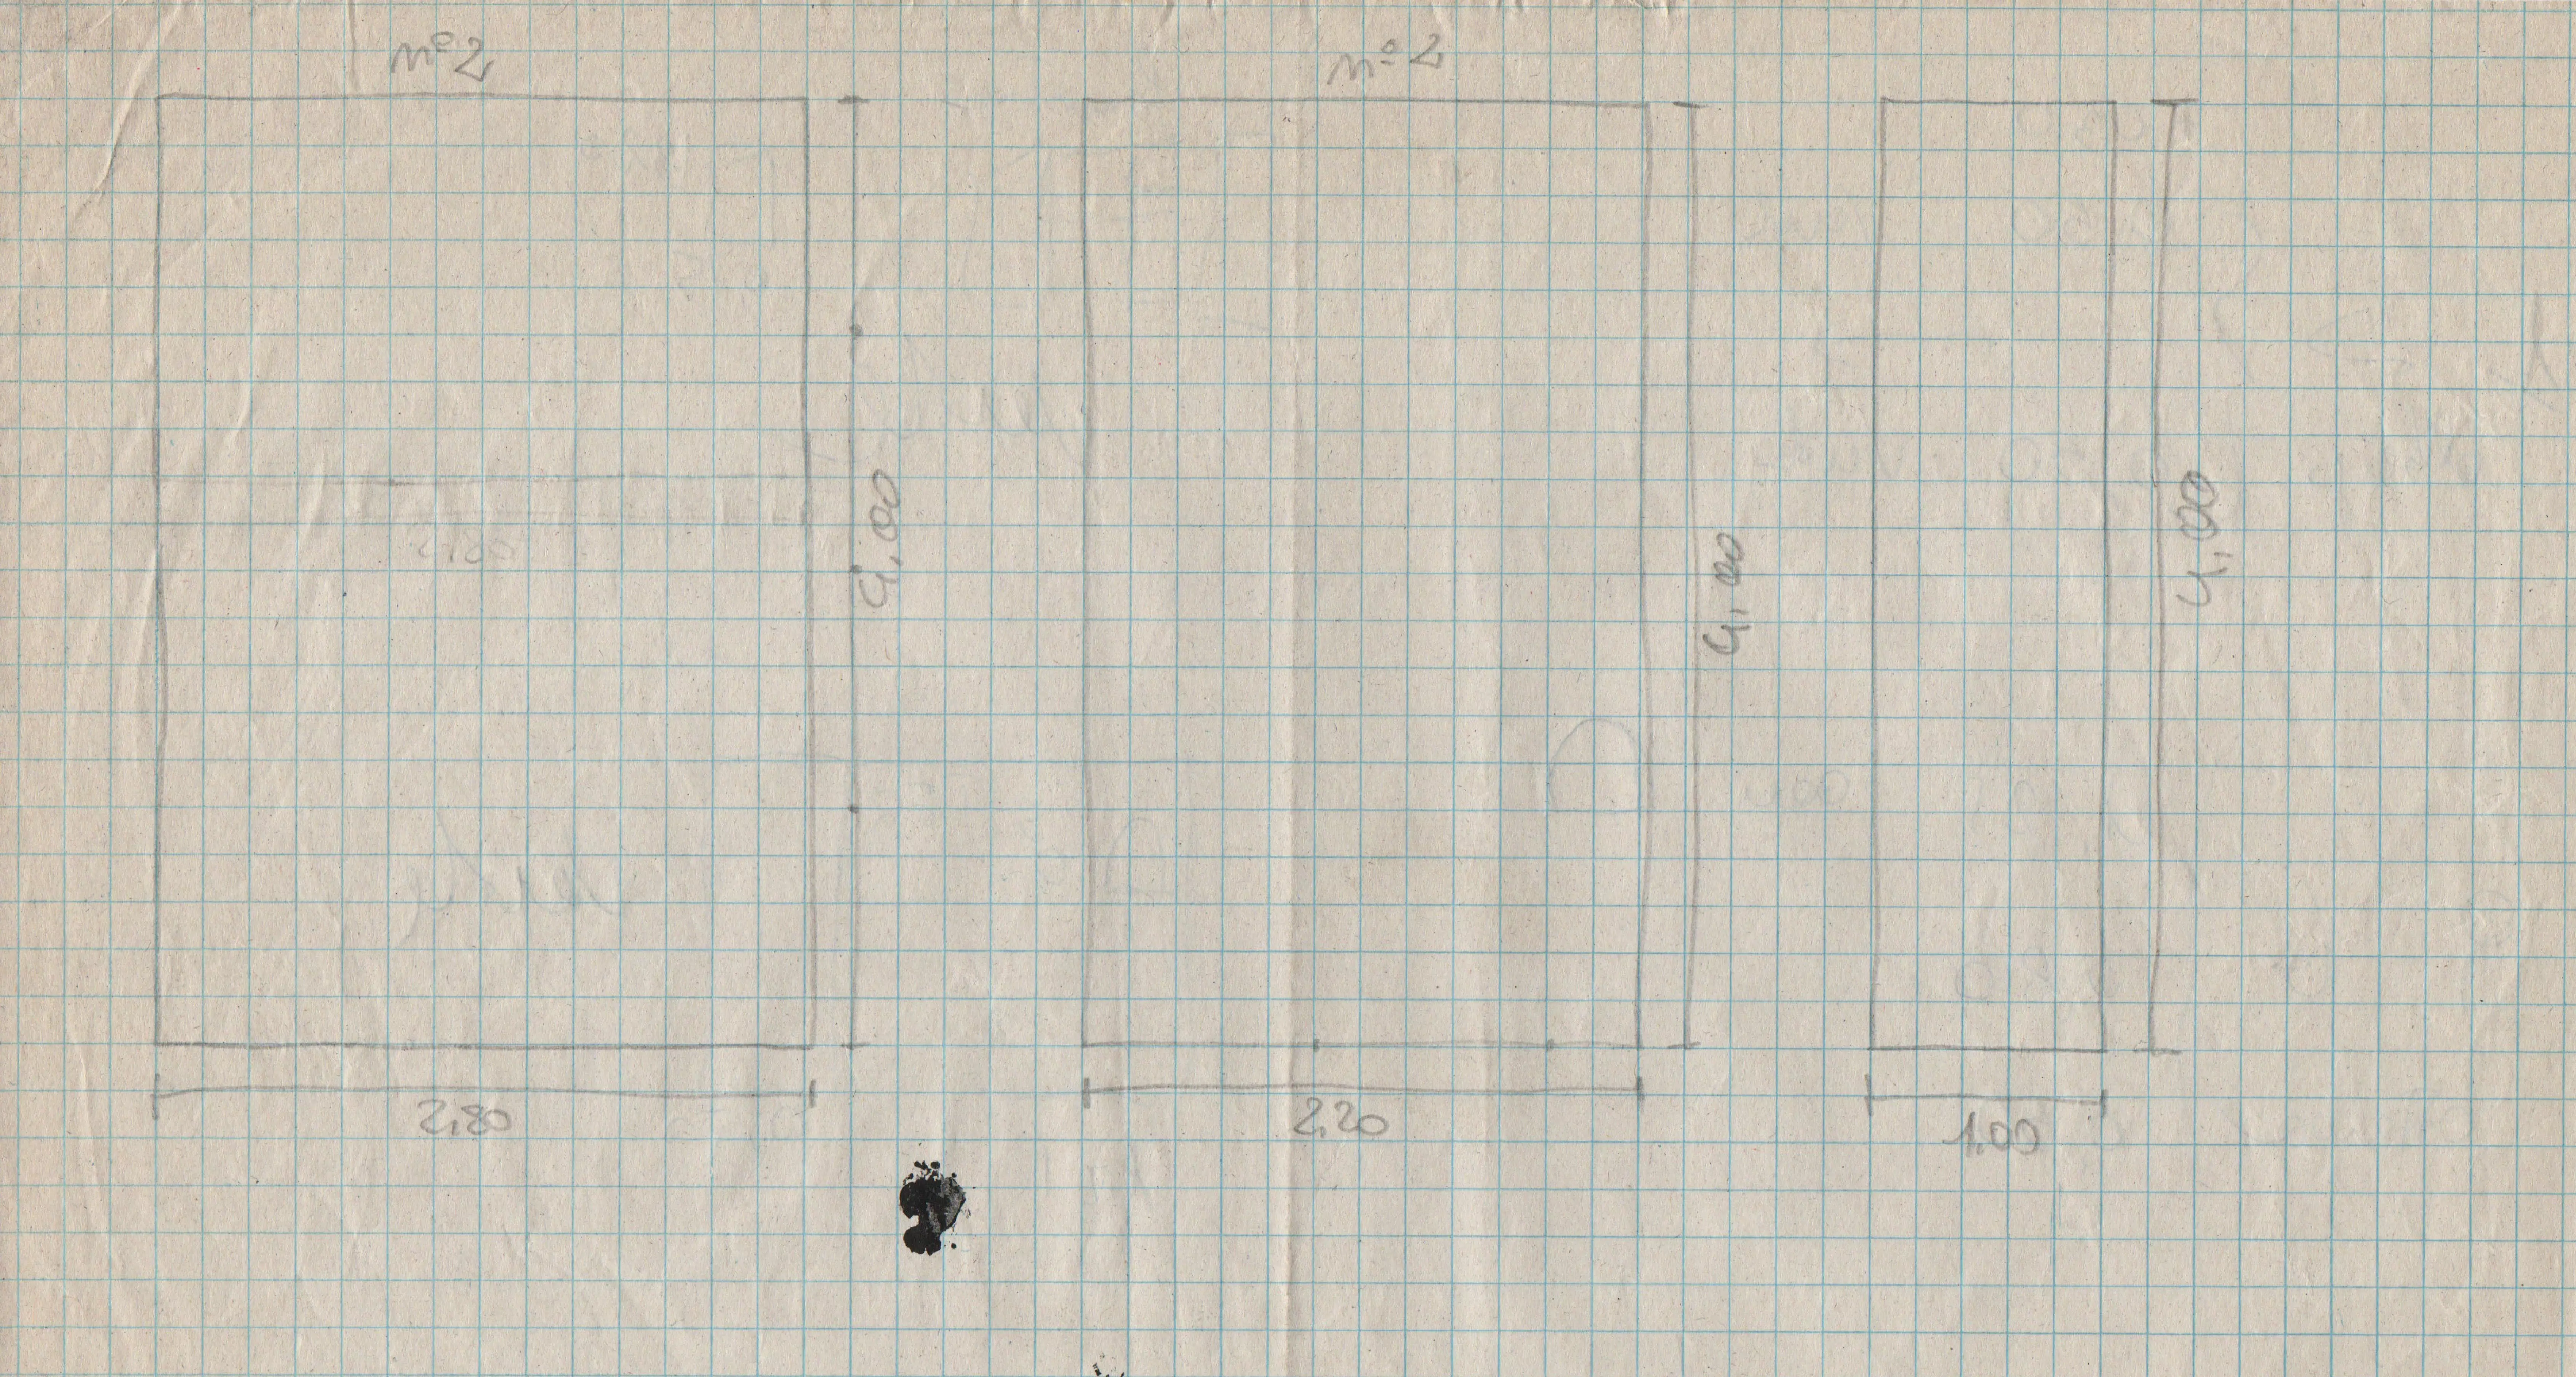 n° 2
n° 2
4,00
4,00
4,00
2,80
2,80
2,20
1,00